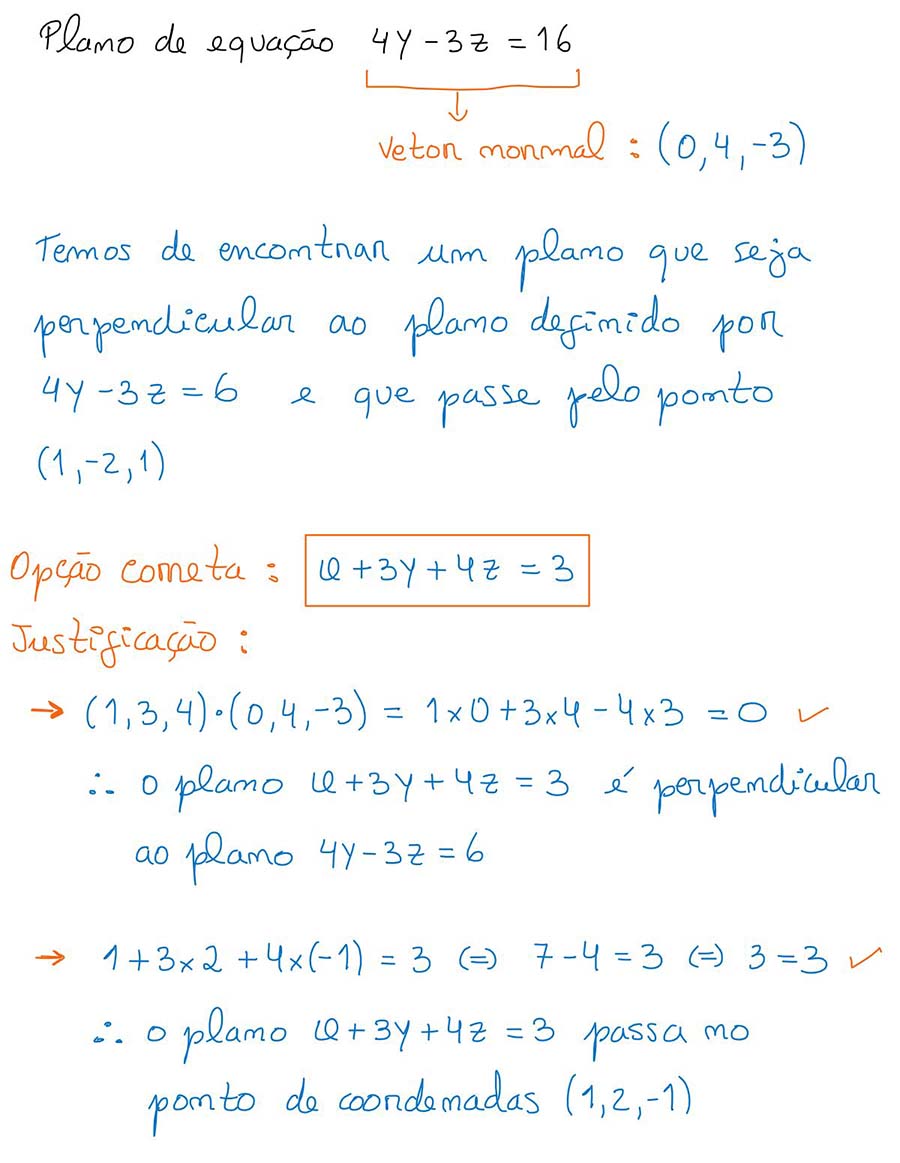 Plano de equação 4y - 3z = 16
Vetor normal : (0, 4, -3)
Temos de encontrar um plano que seja
perpendicular ao plano definido por
4y - 3z = 6 e que passe pelo ponto
(1, -2, 1)
Opção correta : x + 3y + 4z = 3
Justificação :
→ (1, 3, 4) · (0, 4, -3) = 1×0 + 3×4 - 4×3 = 0 ✓
∴ o plano x + 3y + 4z = 3 é perpendicular
ao plano 4y - 3z = 6
→ 1 + 3×2 + 4×(-1) = 3 (=) 7 - 4 = 3 (=) 3 = 3 ✓
∴ o plano x + 3y + 4z = 3 passa no
ponto de coordenadas (1, 2, -1)